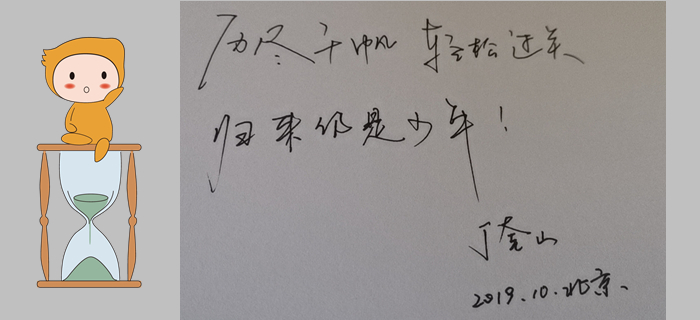 历尽千帆 轻松过关
归来仍是少年！
丁奎山
2019.10.北京.